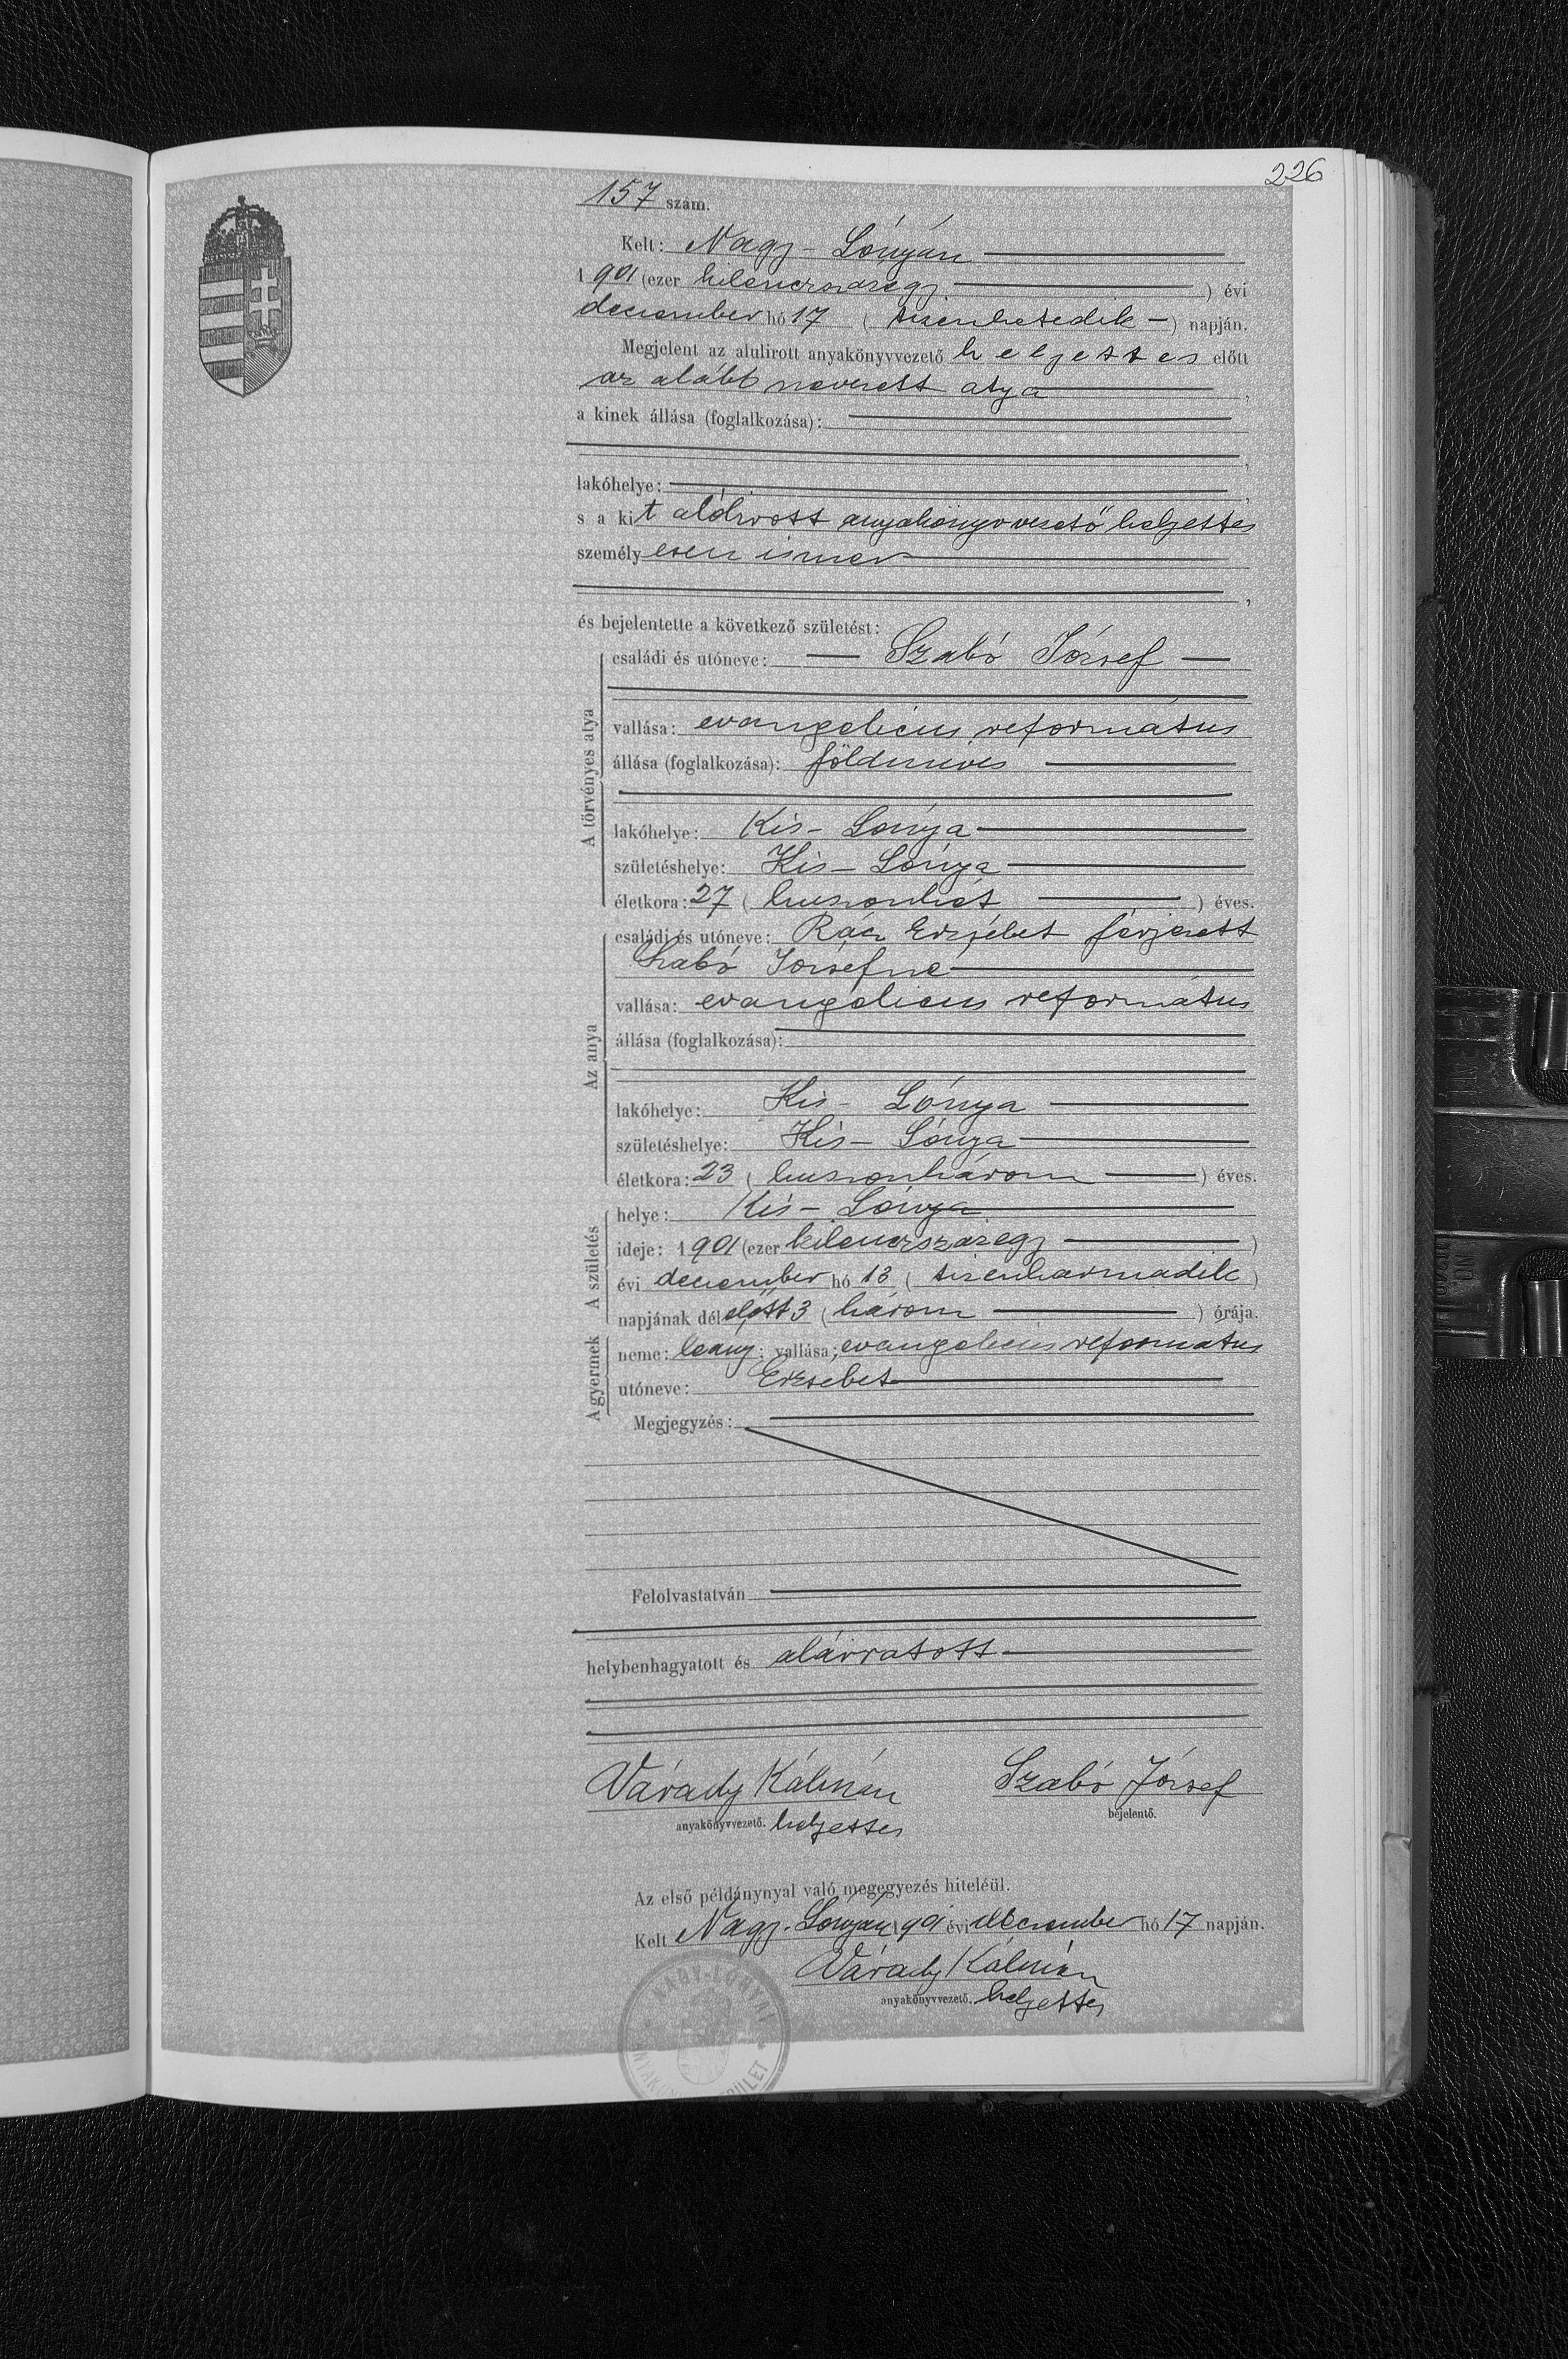 226
157 szám.
Kelt: Nagy-Lónyán
1901 (ezer kilenczszázegy) évi
december hó 17 (tizenhetedik) napján.
Megjelent az alulirott anyakönyvvezető helyettes előtt
az alább nevezett atya,
a kinek állása (foglalkozása):
,
lakóhelye: ,
s a kit alólirott anyakönyvvezető helyettes
személyesen ismer
,
és bejelentette a következő születést:
A törvényes atya
családi és utóneve: Szabó József
vallása: evangelicus református
állása (foglalkozása): földmivés
lakóhelye: Kis-Lónya
születéshelye: Kis-Lónya
életkora: 27 (huszonhét) éves.
Az anya
családi és utóneve: Rácz Erzsébet férjezett
Szabó Józsefne
vallása: evangelicus református
állása (foglalkozása):
lakóhelye: Kis-Lónya
születéshelye: Kis-Lónya
életkora: 23 (huszonhárom) éves.
A születés
helye: Kis-Lónya
ideje: 1901 (ezer kilenczszázegy)
évi december hó 13 (tizenharmadik)
napjának délelőtt 3 (három) órája.
A gyermek
neme: leány; vallása; evangelicus református
utóneve: Erzsebet
Megjegyzés:
Felolvastatván
helybenhagyatott és aláiratott
Várady Kálmán Szabó József
anyakönyvvezető. helyettes bejelentő.
Az első példánynyal való megegyezés hiteléül.
Kelt Nagy-Lónyán 1901 évi december hó 17 napján.
Várady Kálmán
anyakönyvvezető. helyettes
NAGY-LÓNYAI